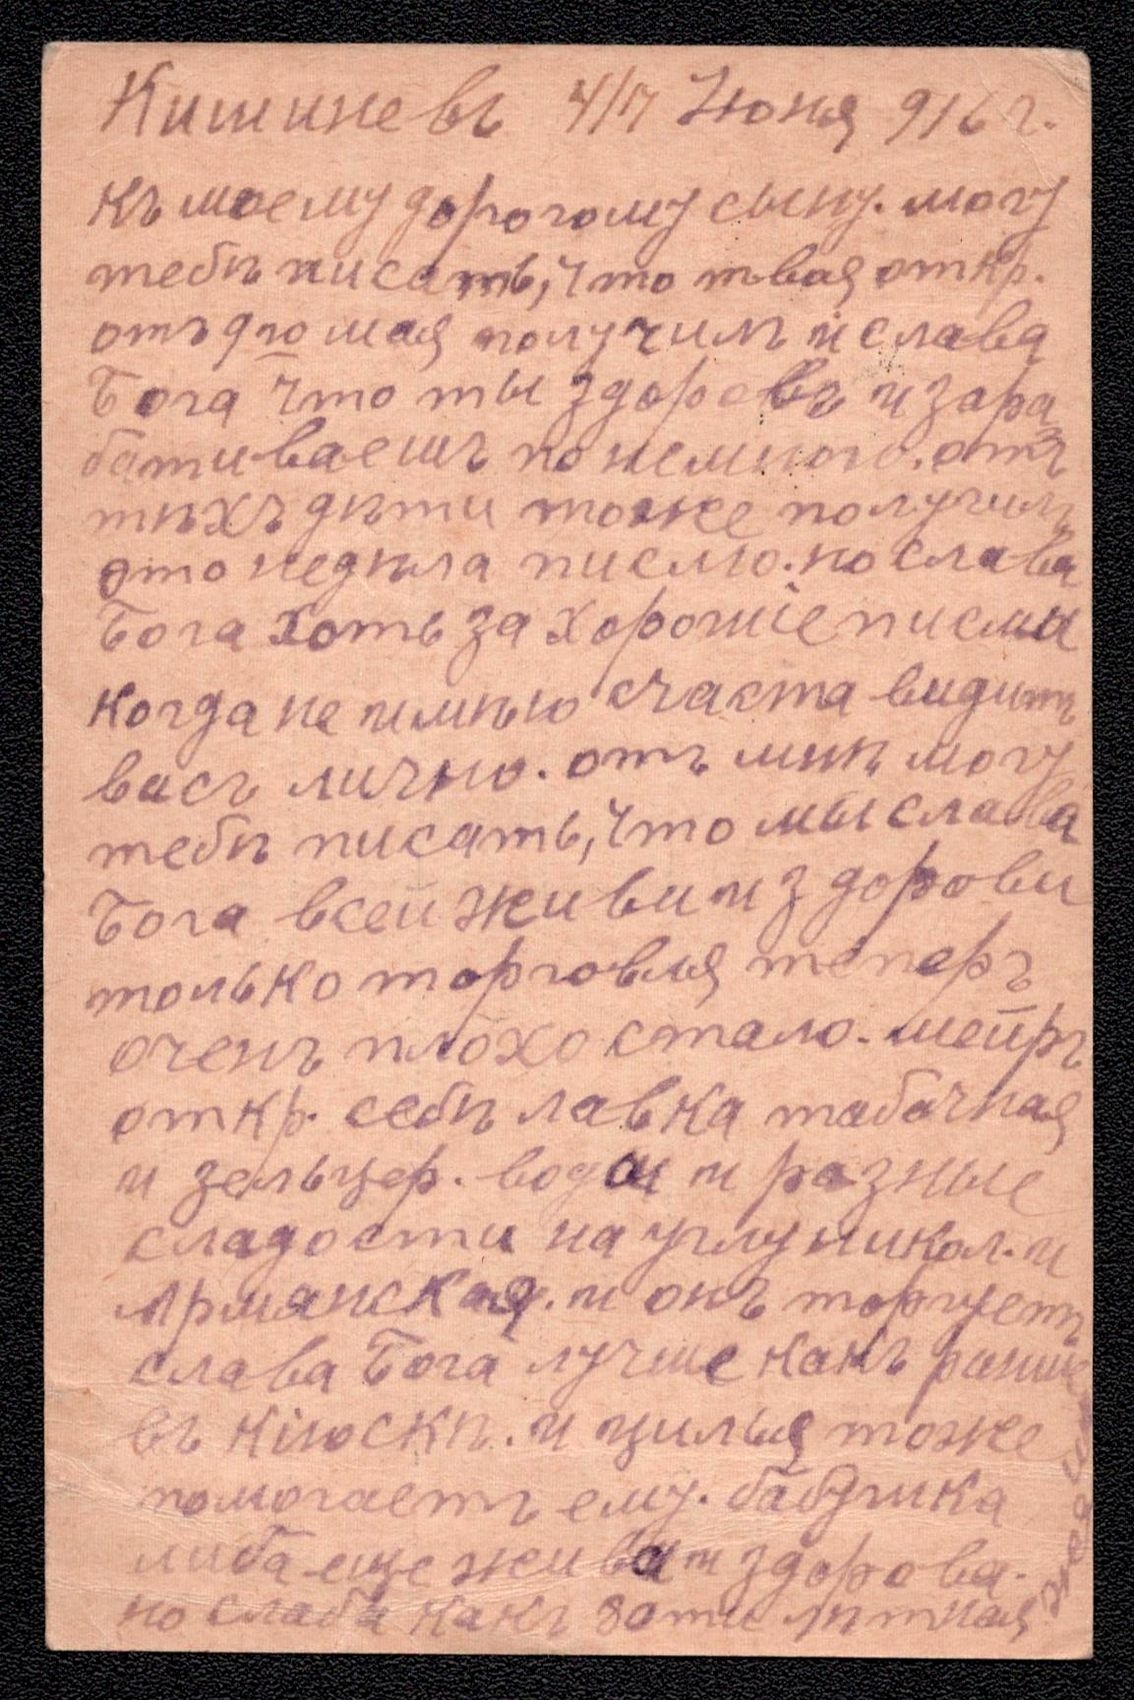 Кишиневъ 4/17 Июня 916 г.
Къ моему дорогому сыну. могу
тебѣ писать, что твая откр.
отъ 9го мая получилъ и слава
Бога что ты здоровъ и зара
бативаешъ по немного. отъ
тѣхъ дѣти тоже получилъ
это недѣла писмо. но слава
Бога хоть за хорошіе писми
когда не имѣю счаста видитъ
васъ лично. отъ мнѣ могу
тебѣ писать, что мы слава
Бога всей живи и здорови
только торговля теперъ
оченъ плохо стало. Мейръ
откр. себѣ лавка табачная
и зельцер. води и разные
сладости на углу никол. и
Армянская. и онъ торгуетъ
слава Бога лучше какъ раниш
въ кіюскѣ. и цилья тоже
помогаетъ ему. бабушка
либа еще жива и здорова.
но слаба какъ 80ти лѣтная